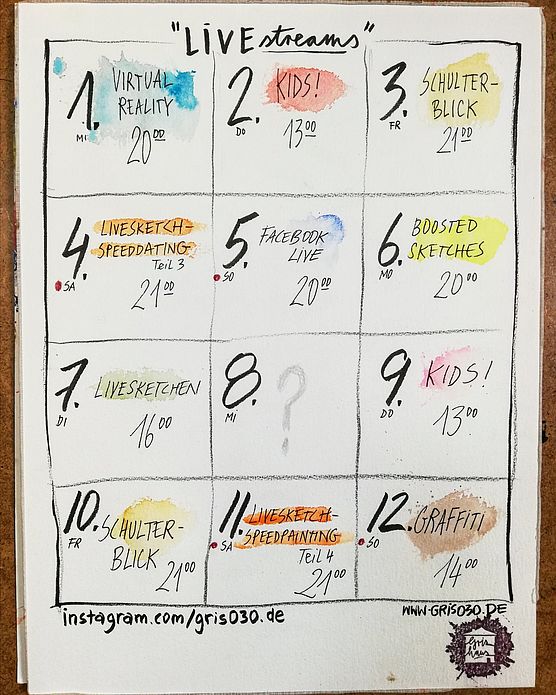 "LIVE streams"
1. VIRTUAL
REALITY
MI
20⁰⁰
2. KIDS!
DO
13⁰⁰
3. SCHULTER-
BLICK
FR
21⁰⁰
4. LIVESKETCH-
SPEEDDATING
Teil 3
SA
21⁰⁰
5. FACEBOOK
LIVE
SO
20⁰⁰
6. BOOSTED
SKETCHES
MO
20⁰⁰
7. LIVESKETCHEN
DI
16⁰⁰
8. ?
MI
9. KIDS!
DO
13⁰⁰
10. SCHULTER-
BLICK
FR
21⁰⁰
11. LIVESKETCH-
SPEEDPAINTING
Teil 4
SA
21⁰⁰
12. GRAFFITI
SO
14⁰⁰
instagram.com/gris030.de
WWW.GRIS030.DE
Gris
haus